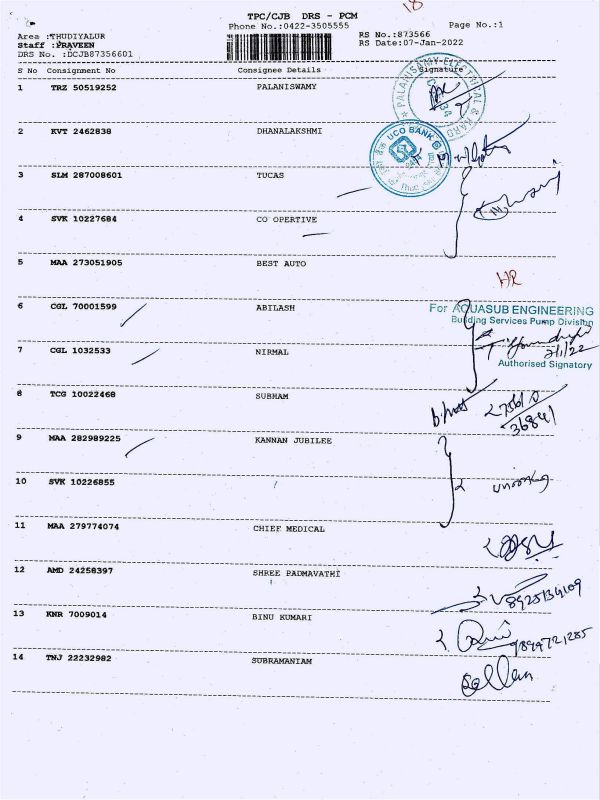 18
TPC/CJB DRS - PCM
Phone No.:0422-3505555 Page No.:1
Area :THUDIYALUR RS No.:873566
Staff :PRAVEEN RS Date:07-Jan-2022
DRS No. :DCJB87356601
S No Consignment No Consignee Details Signature
1 TRZ 50519252 PALANISWAMY
PALANISAMY ELECTRICAL & HARD
2 KVT 2462838 DHANALAKSHMI
UCO BANK
3 SLM 287008601 TUCAS
4 SVK 10227684 CO OPERTIVE
5 MAA 273051905 BEST AUTO
HR
6 CGL 70001599 ABILASH
For AQUASUB ENGINEERING
Building Services Pump Division
7 CGL 1032533 NIRMAL
Authorised Signatory
8 TCG 10022468 SUBHAM
36841
9 MAA 282989225 KANNAN JUBILEE
10 SVK 10226855
11 MAA 279774074 CHIEF MEDICAL
12 AMD 24258397 SHREE PADMAVATHI
8925134109
13 KNR 7009014 BINU KUMARI
9899721285
14 TNJ 22232982 SUBRAMANIAM